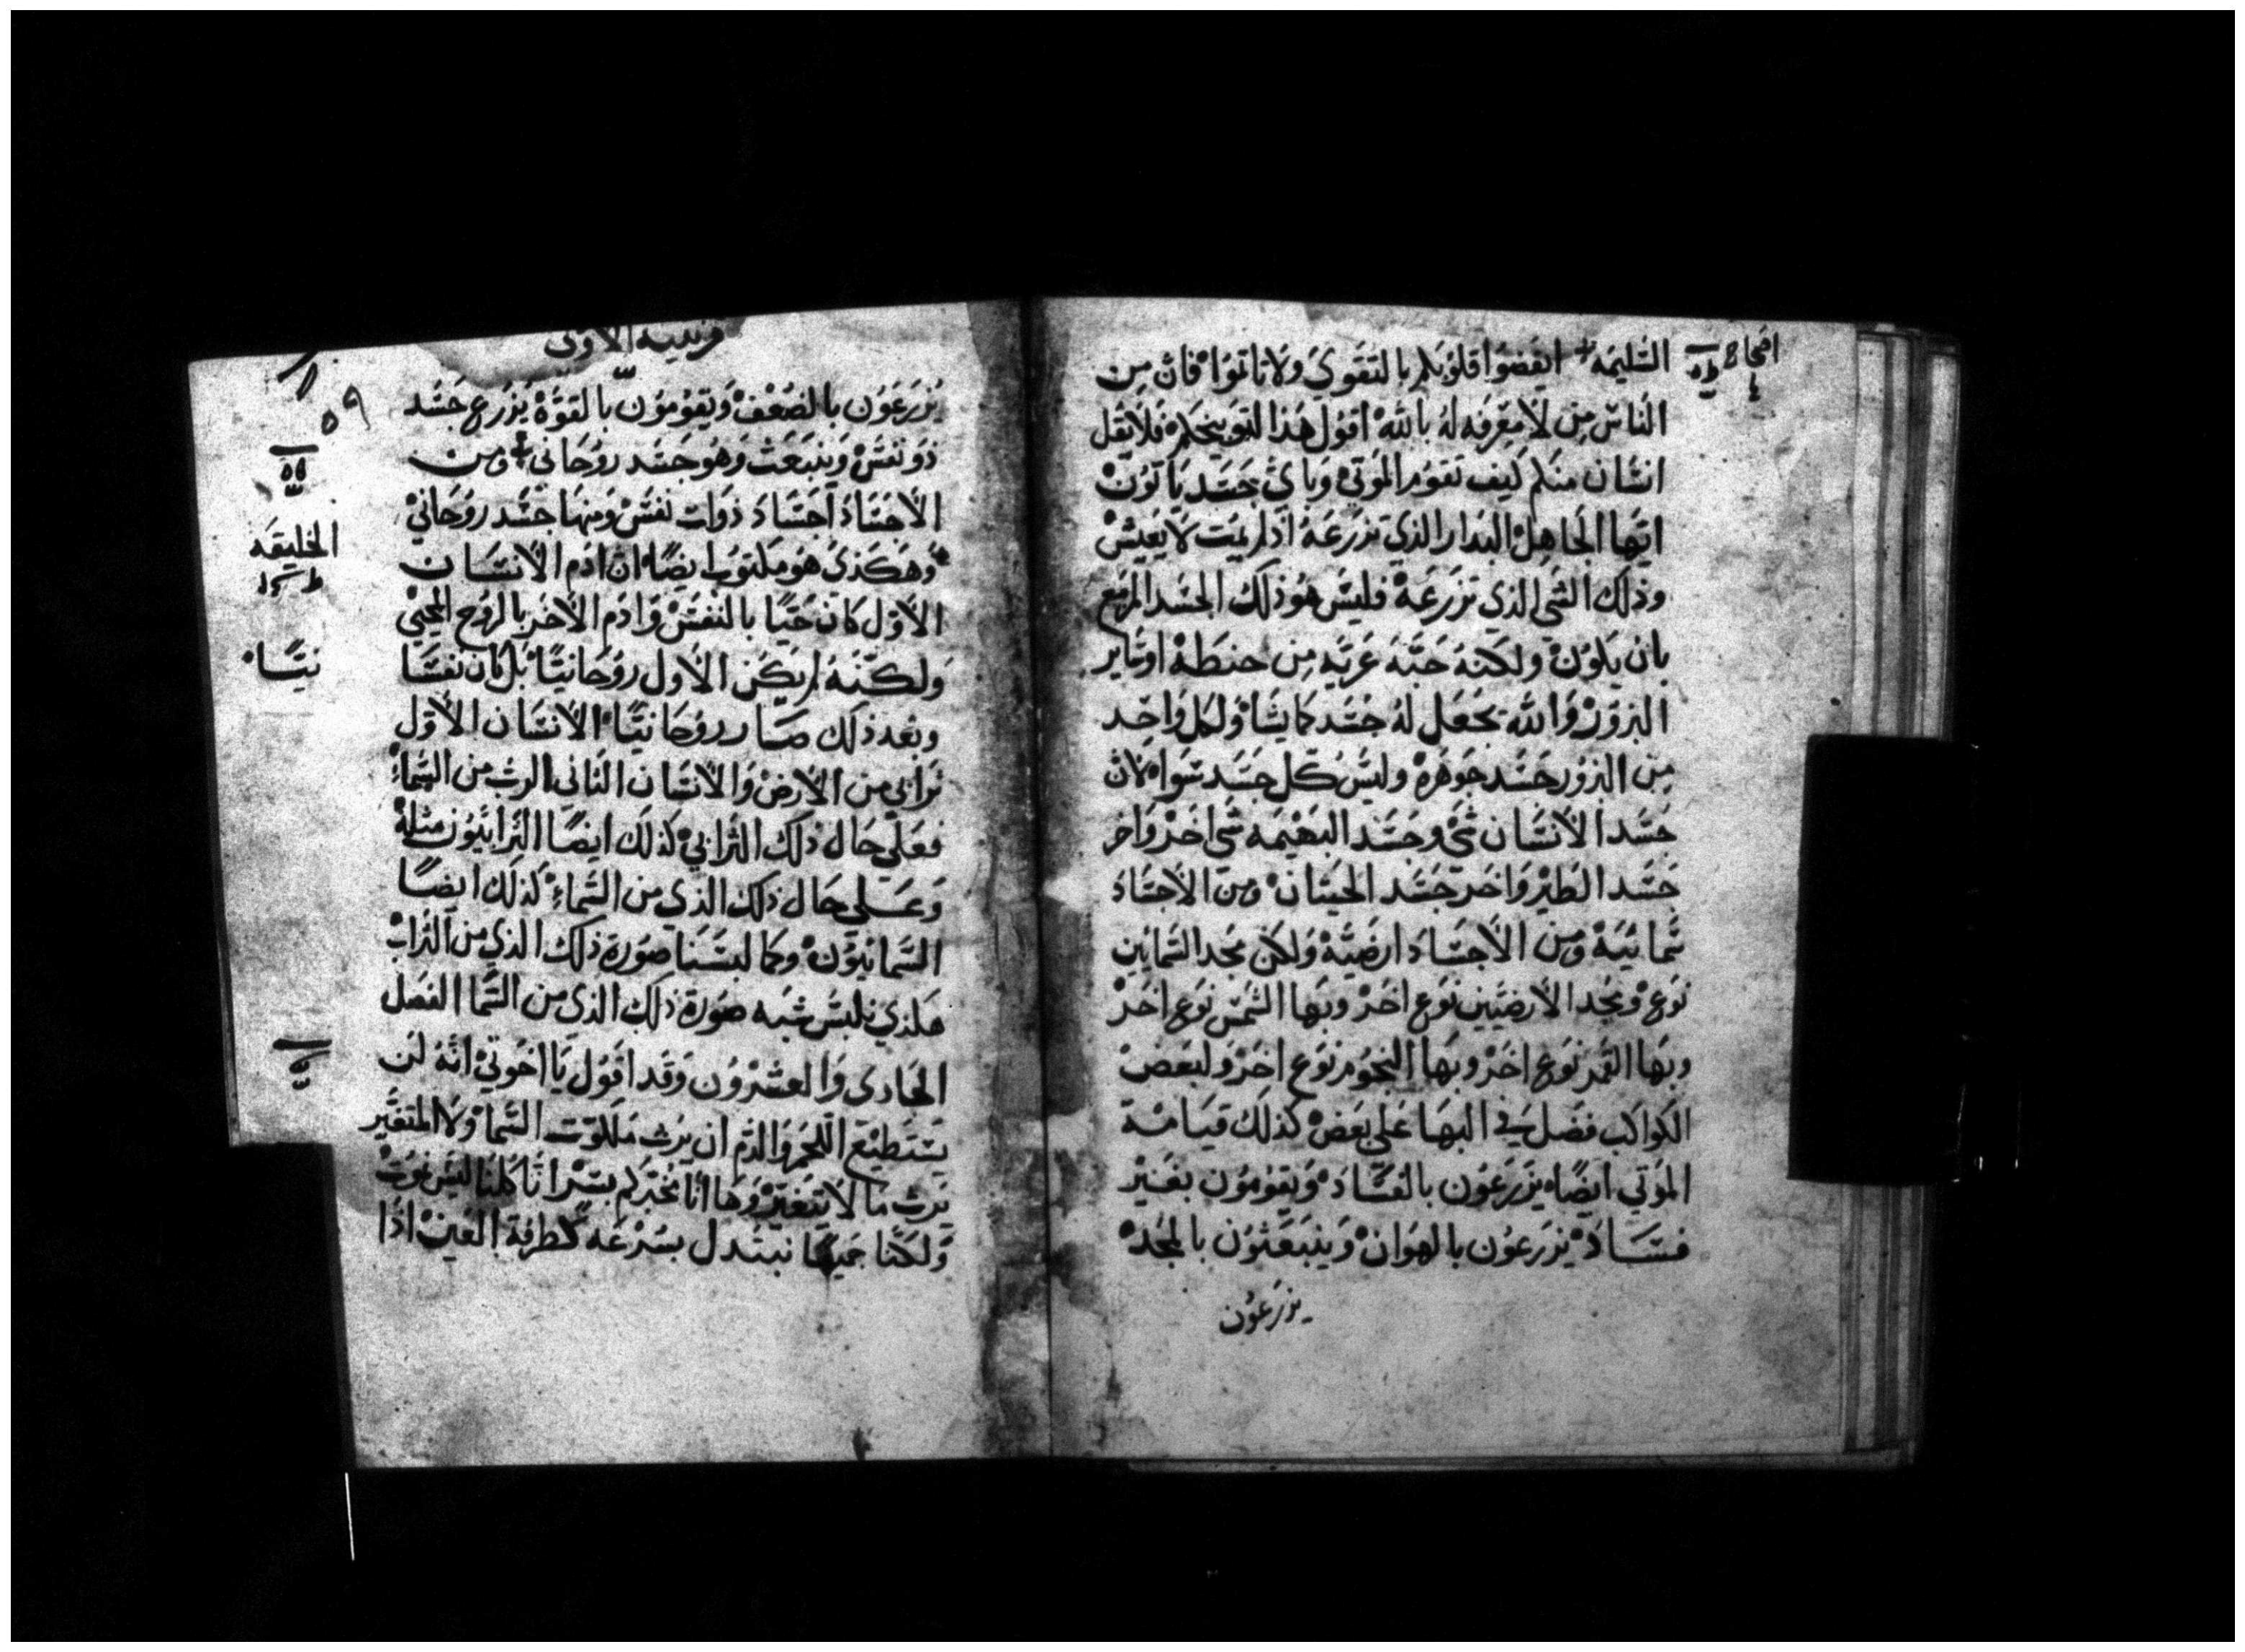 اصحاح
السَّليمَه ايقضوا قلوبكم بالتقوي ولا تاتموا فان مِن
الناس مِن لا مَعرفه له بالله اقول هَذا لتوبيخكم فلا يقل
انسَان منكم كيف تقوم الموتي وباي جسَد ياتون
ايها الجاهِل البدار الذي تزرعَهُ اذ لم يمت لا يعيش
وذلك الشي الذي تزرعَهُ فليس هو ذلك الجسَد المزمع
بان يكون ولكنهُ حَبّه عَريه مِن حنطة او سَاير
البزور والله يجعَل لهُ جسَد كما يشا ولكل واحد
مِن البزور جسَد جوهره وليس كل جسَد سَوا لان
جسَد الانسَان شي وجسَد البهيمه شي اخر واخر
جسَد الطير واخر جسَد الحيتان ومن الاجسَاد
سمائيَة ومن الاجسَاد ارضيّة ولكن مجد السمايين
نوع ومجد الارضيين نوع اخر وبها الشمس نوع اخر
وبها القمر نوع اخر وبها النجوم نوع اخر ولبعض
الكواكب فضل في البهَا عَلي بعض كذلك قيامَة
الموتي ايضًا يزرعَون بالفسَاد ويقومون بغير
فسَاد يزرعون بالهوان وينبعَثون بالمجد
يزرعون
قرنتيه الاولي
٥٩
يُزرعَون بالضعف ويقومون بالقوّة يزرع جسَد
ذو نفس وينبعَث وهو جسَد روحاني ومن
الاجسَاد اجسَاد ذوات نفس ومنها جسَد روحاني
وهكذي هو مكتوب ايضًا ان ادم الانسَان
الاول كان حَيًا بالنفس وادم الاخر بالروح المحيي
ولكنهُ لم يكن الاول روحانيًا بل كان نفسَا
نيًا
وبعد ذلك صَار روحانيًا الانسَان الاول
ترابي من الارض والانسَان الثاني الرب من السَّماءِ
فعَلي حَال ذلك الترابي كذلك ايضًا الترابيُون مثله
وعَلي حَال ذلك الذي من السَّماءِ كذلك ايضًا
السَّمائيون وكما لبسنَا صورة ذلك الذي من التراب
هَكذي نلبس شبه صورة ذلك الذي من السَّما الفصل
الحادي والعشرون وقد اقول يا اخوتي انهُ لن
يستطيع اللحم والدّم ان يرث مَلكوت السَّما ولا المتغير
يرث ما لا يتغير وها انا مخبركم بسرّ انا كلنا ليس نموت
ولكنّا جميعًا نبتدل بسُرعَه كطرفة العين اذا
الخليقه